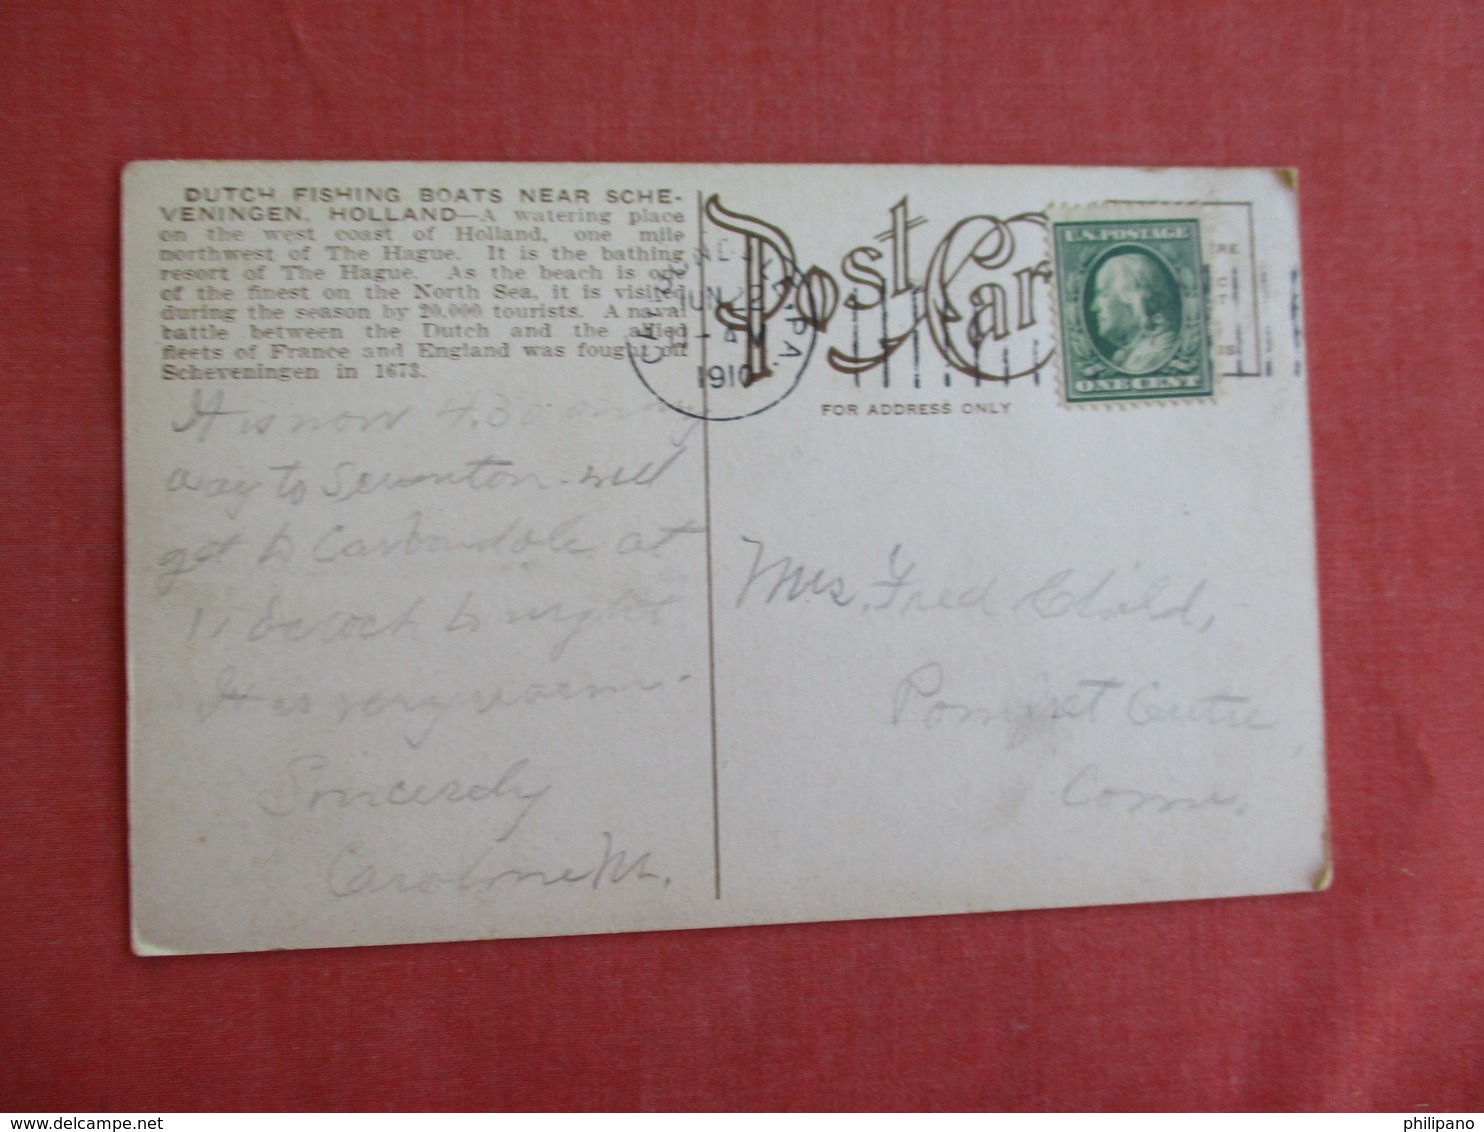 DUTCH FISHING BOATS NEAR SCHE-
VENINGEN, HOLLAND—A watering place
on the west coast of Holland, one mile
northwest of The Hague. It is the bathing
resort of The Hague. As the beach is one
of the finest on the North Sea, it is visited
during the season by 20,000 tourists. A naval
battle between the Dutch and the allied
fleets of France and England was fought off
Scheveningen in 1673.
It is now 4.30 on my
way to Scranton - will
get to Carbondale at
11 o'clock to night
It is very warm -
Sincerely
Caroline M.
Post Car
FOR ADDRESS ONLY
CARBONDALE, PA.
JUN 22
1910
U.S. POSTAGE
ONE CENT
Mrs. Fred Child,
Pomfret Centre
Conn.
philipano